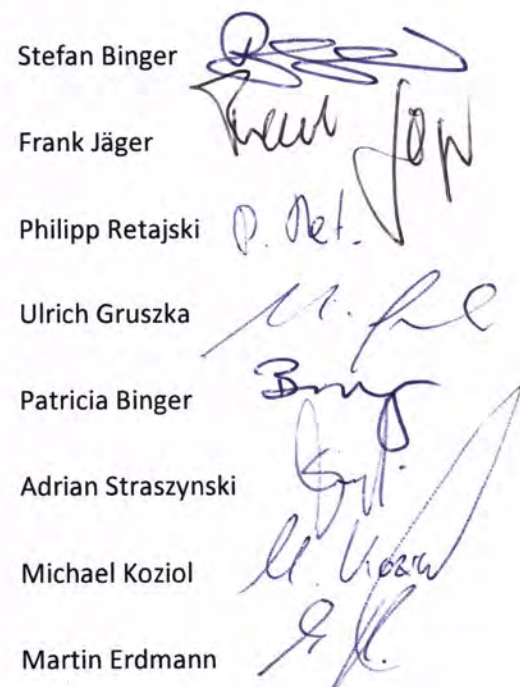 Stefan Binger
Frank Jäger
Philipp Retajski P. Ret.
Ulrich Gruszka
Patricia Binger
Adrian Straszynski
Michael Koziol M. Koziol
Martin Erdmann